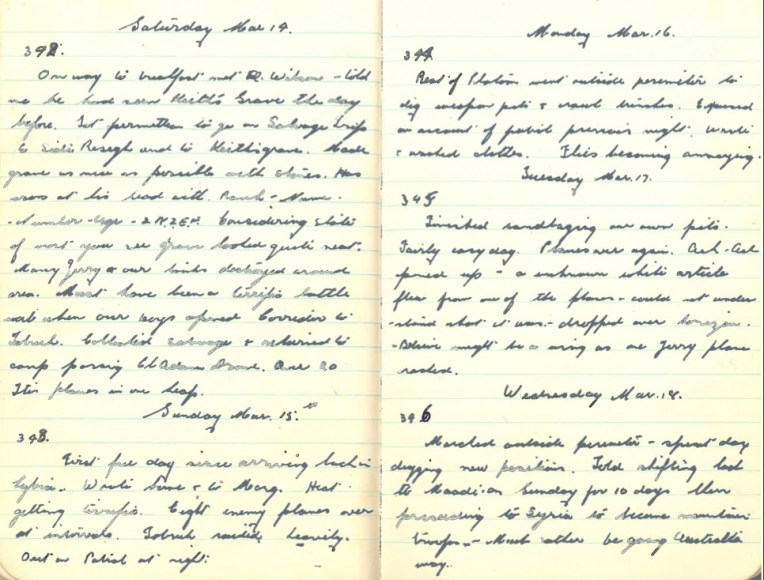 Saturday Mar 14.
392.
On way to breakfast met R. Wilson - told
me he had seen Keith's Grave the day
before. Got permission to go on Salvage trip
to Sidi Rezegh and to Keith's grave. Made
grave as nice as possible with stones. Has
cross at his head with. Rank - Name.
- Number - Age - 2 N.Z.E.F. Considering state
of most you see grave looked quite neat.
Many Jerry & our tanks destroyed around
area. Must have been a terrific battle
when our boys opened Corridor to
Tobruk. Collected salvage & returned to
camp passing El Adem Drome. Over 20
Itie planes in one heap.
Sunday Mar. 15.th
393.
First free day since arriving back in
Lybia. Wrote home & to Marg. Heat
getting terrific. Eight enemy planes over
at intervals. Tobruk raided heavily.
Out on Patrol at night.
Monday Mar. 16.
394
Rest of Platoon went outside perimeter to
dig weapon pits & crawl trenches. Excused
on account of patrol previous night. Wrote
& washed clothes. Flies becoming annoying.
Tuesday Mar. 17.
395
Finished sandbaging our own pits.
Fairly easy day. Planes over again. Ack-Ack
opened up - a unknown white article
flew from one of the planes - could not under
-stand what it was. - dropped over horizon.
- Believe might be a wing as one Jerry plane
crashed.
Wednesday Mar. 18.
396
Marched outside perimeter - spent day
digging new position. Told shifting back
to Maadi on Sunday for 10 days then
proceeding to Syria to become mountain
troops. - Must rather be going Australia
way.